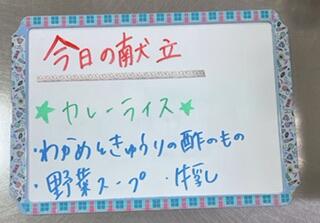 今日の献立
★カレーライス★
・わかめときゅうりの酢のもの
・野菜スープ ・牛乳